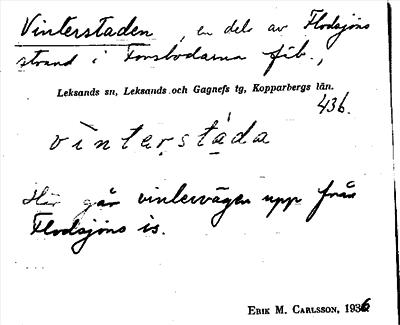 Vinterstaden, en del av Flodsjöns
strand i Forsbodarna fäb.,
Leksands sn, Leksands och Gagnefs tg, Kopparbergs län.
436.
vìntęrstàda
Här går vintervägen upp från
Flodsjöns is.
ERIK M. CARLSSON, 1936.